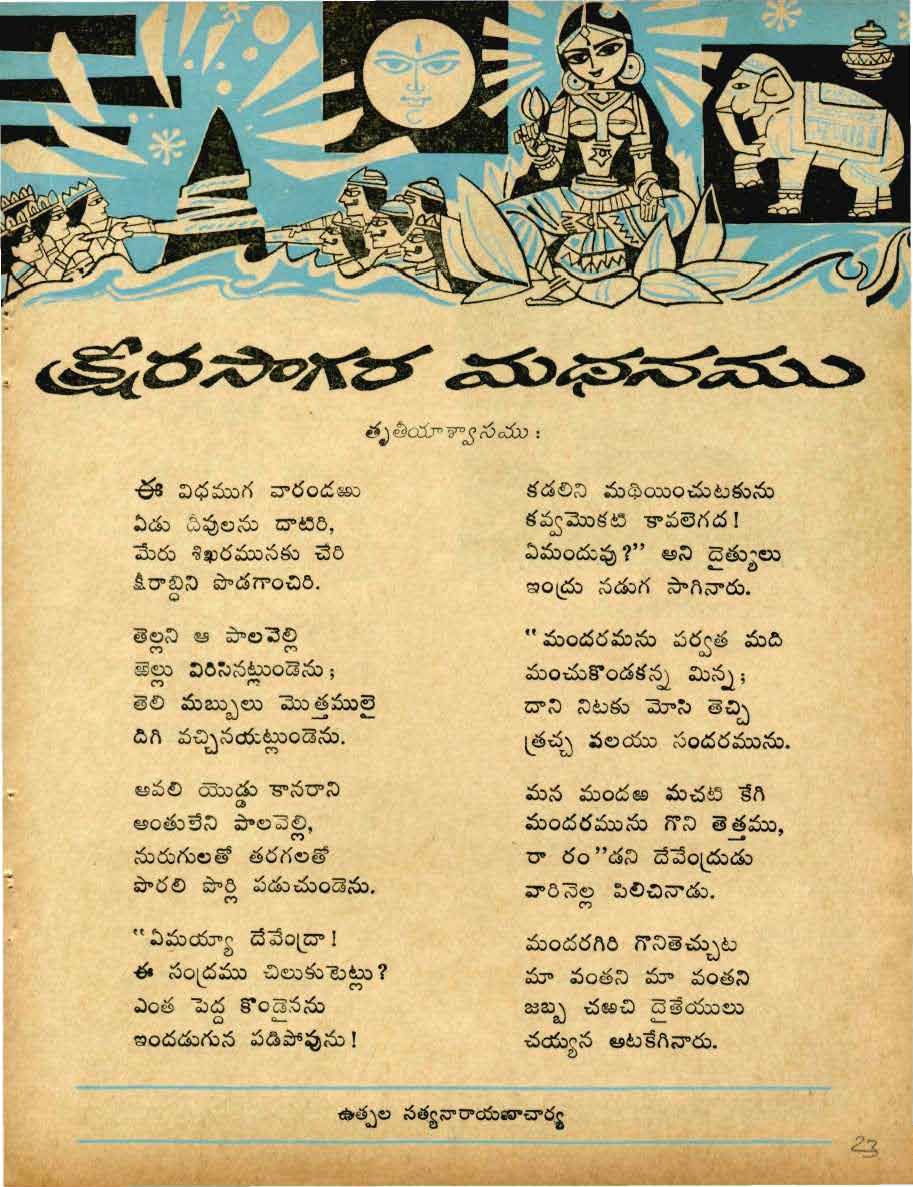 క్షీరసాగర మథనము
తృతీయాశ్వాసము :
ఈ విధముగ వారందఱు
ఏడు దీవులను దాటిరి,
మేరు శిఖరమునకు చేరి
క్షీరాబ్ధిని పొడగాంచిరి.
తెల్లని ఆ పాలవెల్లి
ఱెల్లు విరిసినట్లుండెను ;
తెలి మబ్బులు మొత్తములై
దిగి వచ్చినయట్లుండెను.
అవలి యొడ్డు కానరాని
అంతులేని పాలవెల్లి,
నురుగులతో తరగలతో
పొరలి పొర్లి పడుచుండెను.
"ఏమయ్యా దేవేంద్రా !
ఈ సంద్రము చిలుకుటెట్లు ?
ఎంత పెద్ద కొండైనను
ఇందడుగున పడిపోవును !
కడలిని మథియించుటకును
కవ్వమొకటి కావలెగద !
ఏమందువు ?" అని దైత్యులు
ఇంద్రు నడుగ సాగినారు.
"మందరమను పర్వత మది
మంచుకొండకన్న మిన్న ;
దాని నిటకు మోసి తెచ్చి
త్రచ్చ వలయు సందరమును.
మన మందఱ మచటి కేగి
మందరమును గొని తెత్తము,
రా రం"డని దేవేంద్రుడు
వారినెల్ల పిలిచినాడు.
మందరగిరి గొనితెచ్చుట
మా వంతని మా వంతని
జబ్బ చఱచి దైతేయులు
చయ్యన అటకేగినారు.
ఉత్పల సత్యనారాయణాచార్య
23